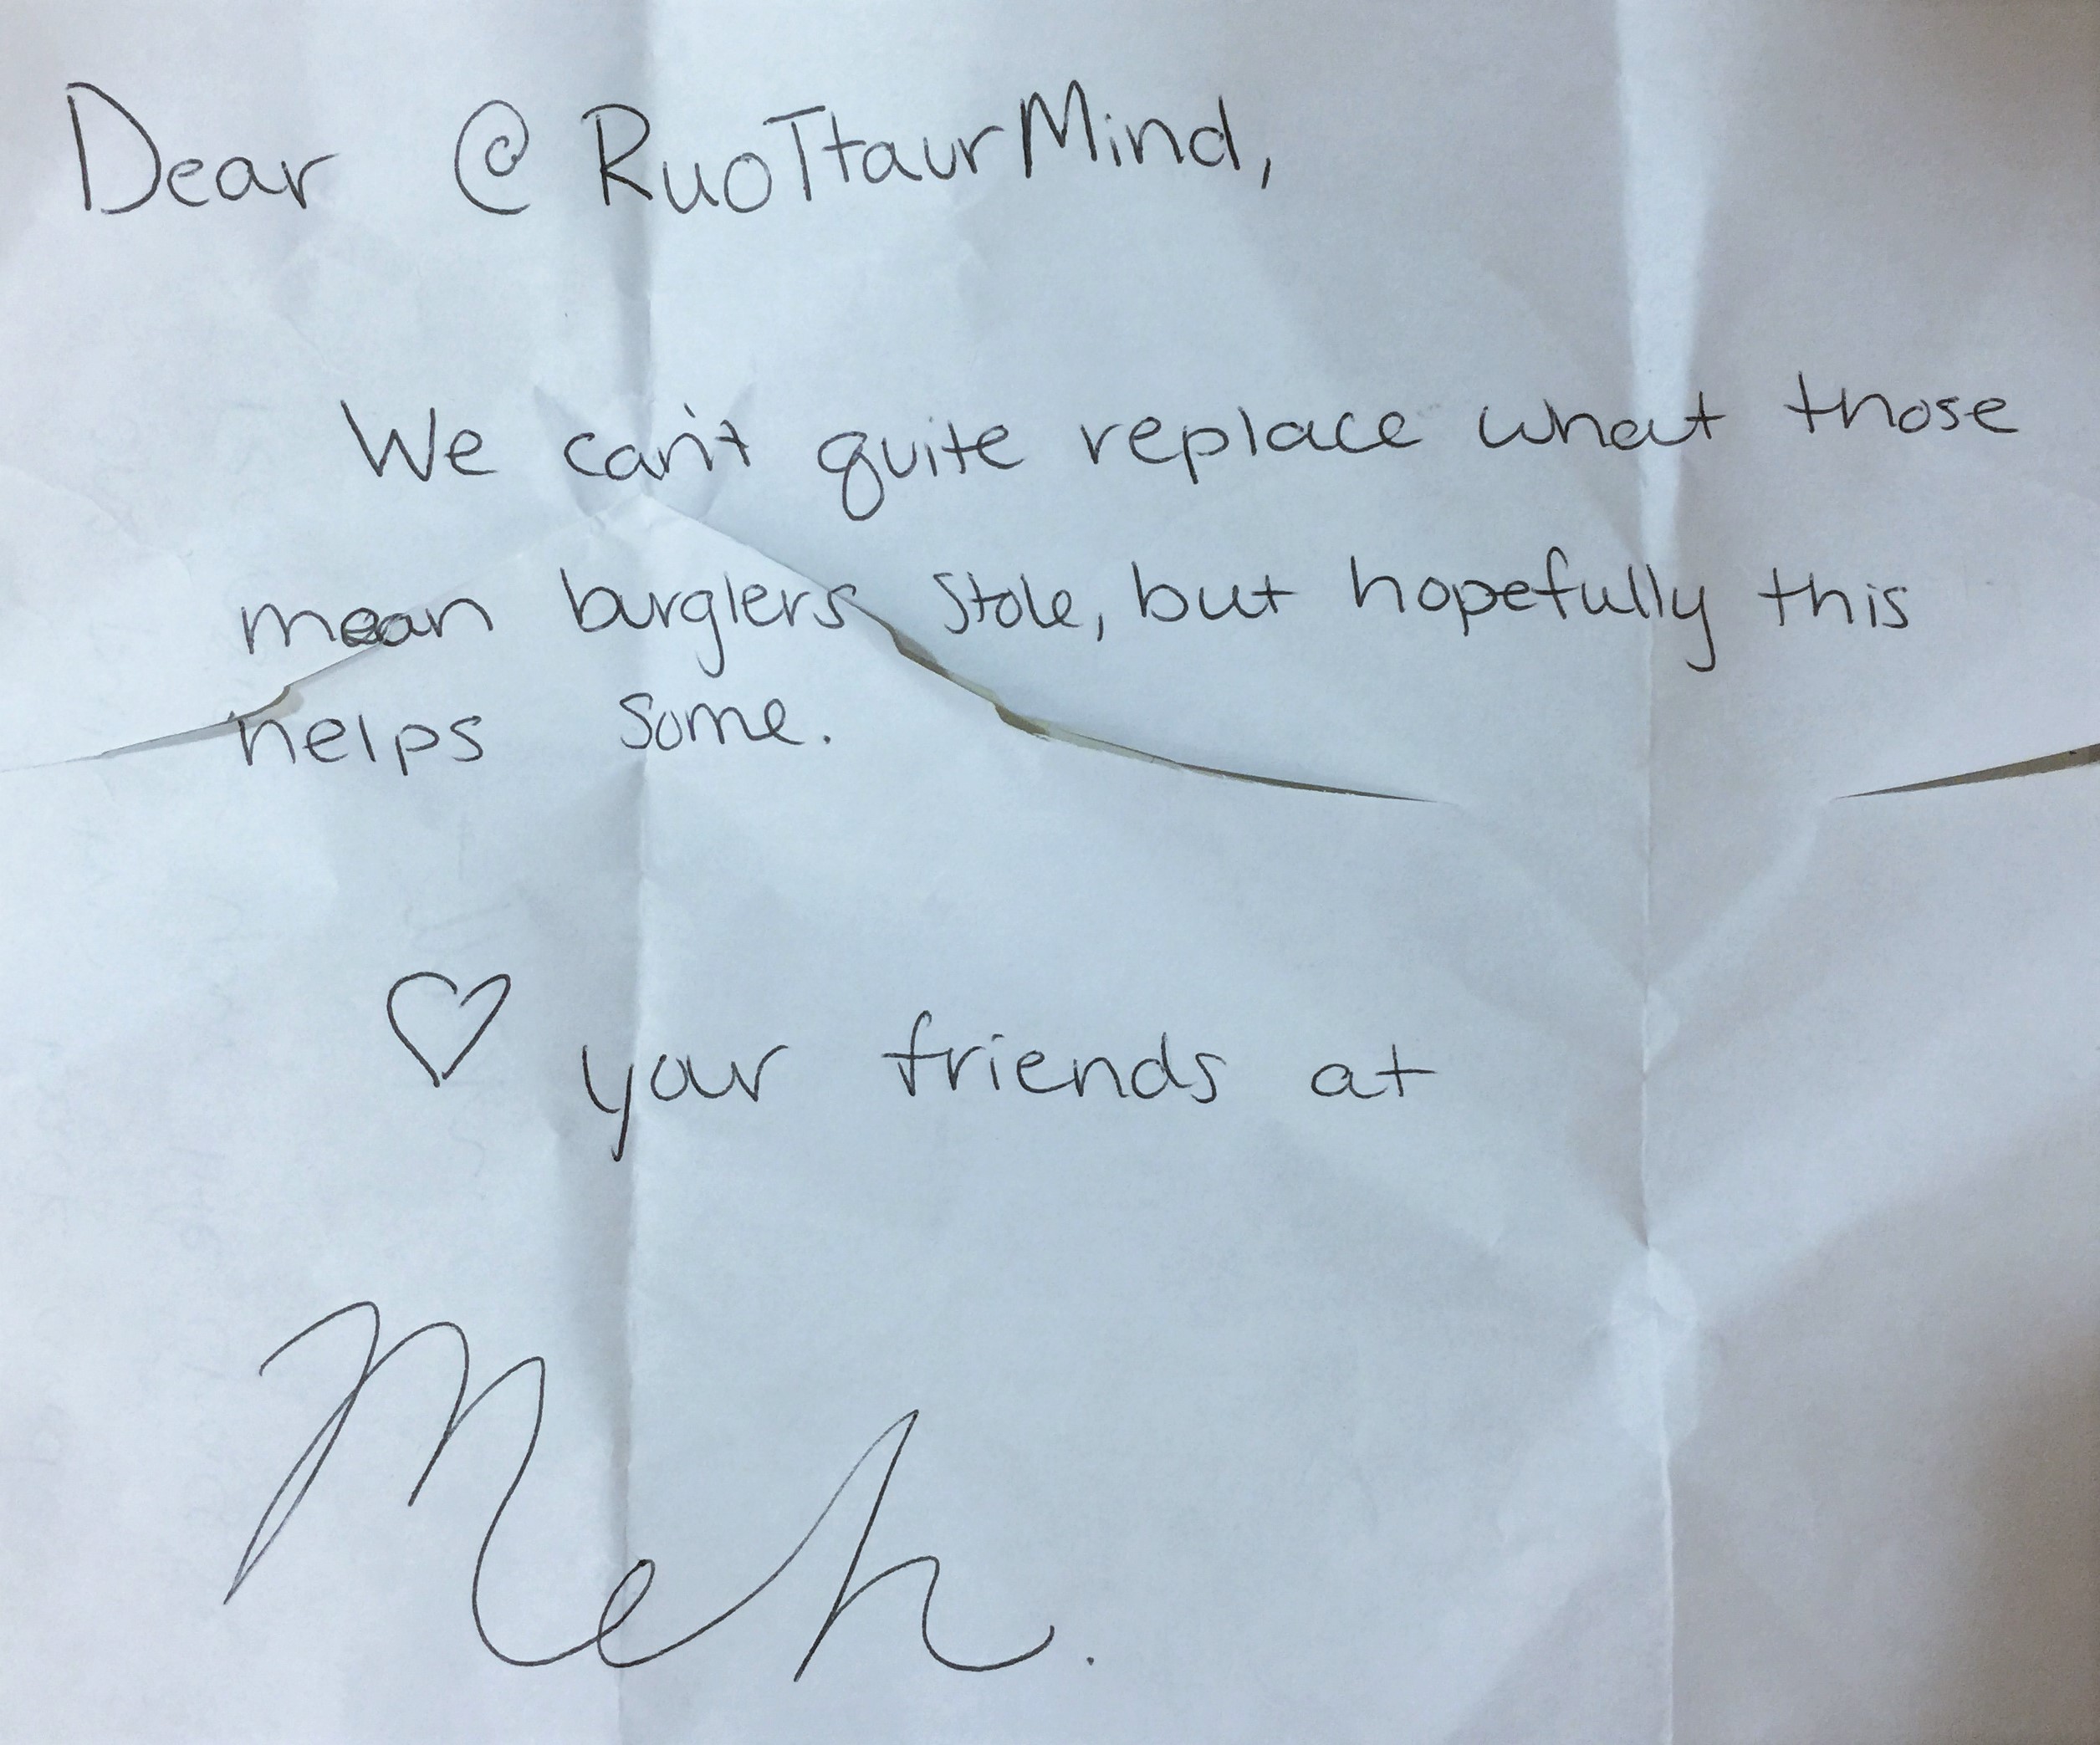 Dear @RuoTtaurMind,
We can't quite replace what those
mean burglers stole, but hopefully this
helps some.
♡ your friends at
Meh.